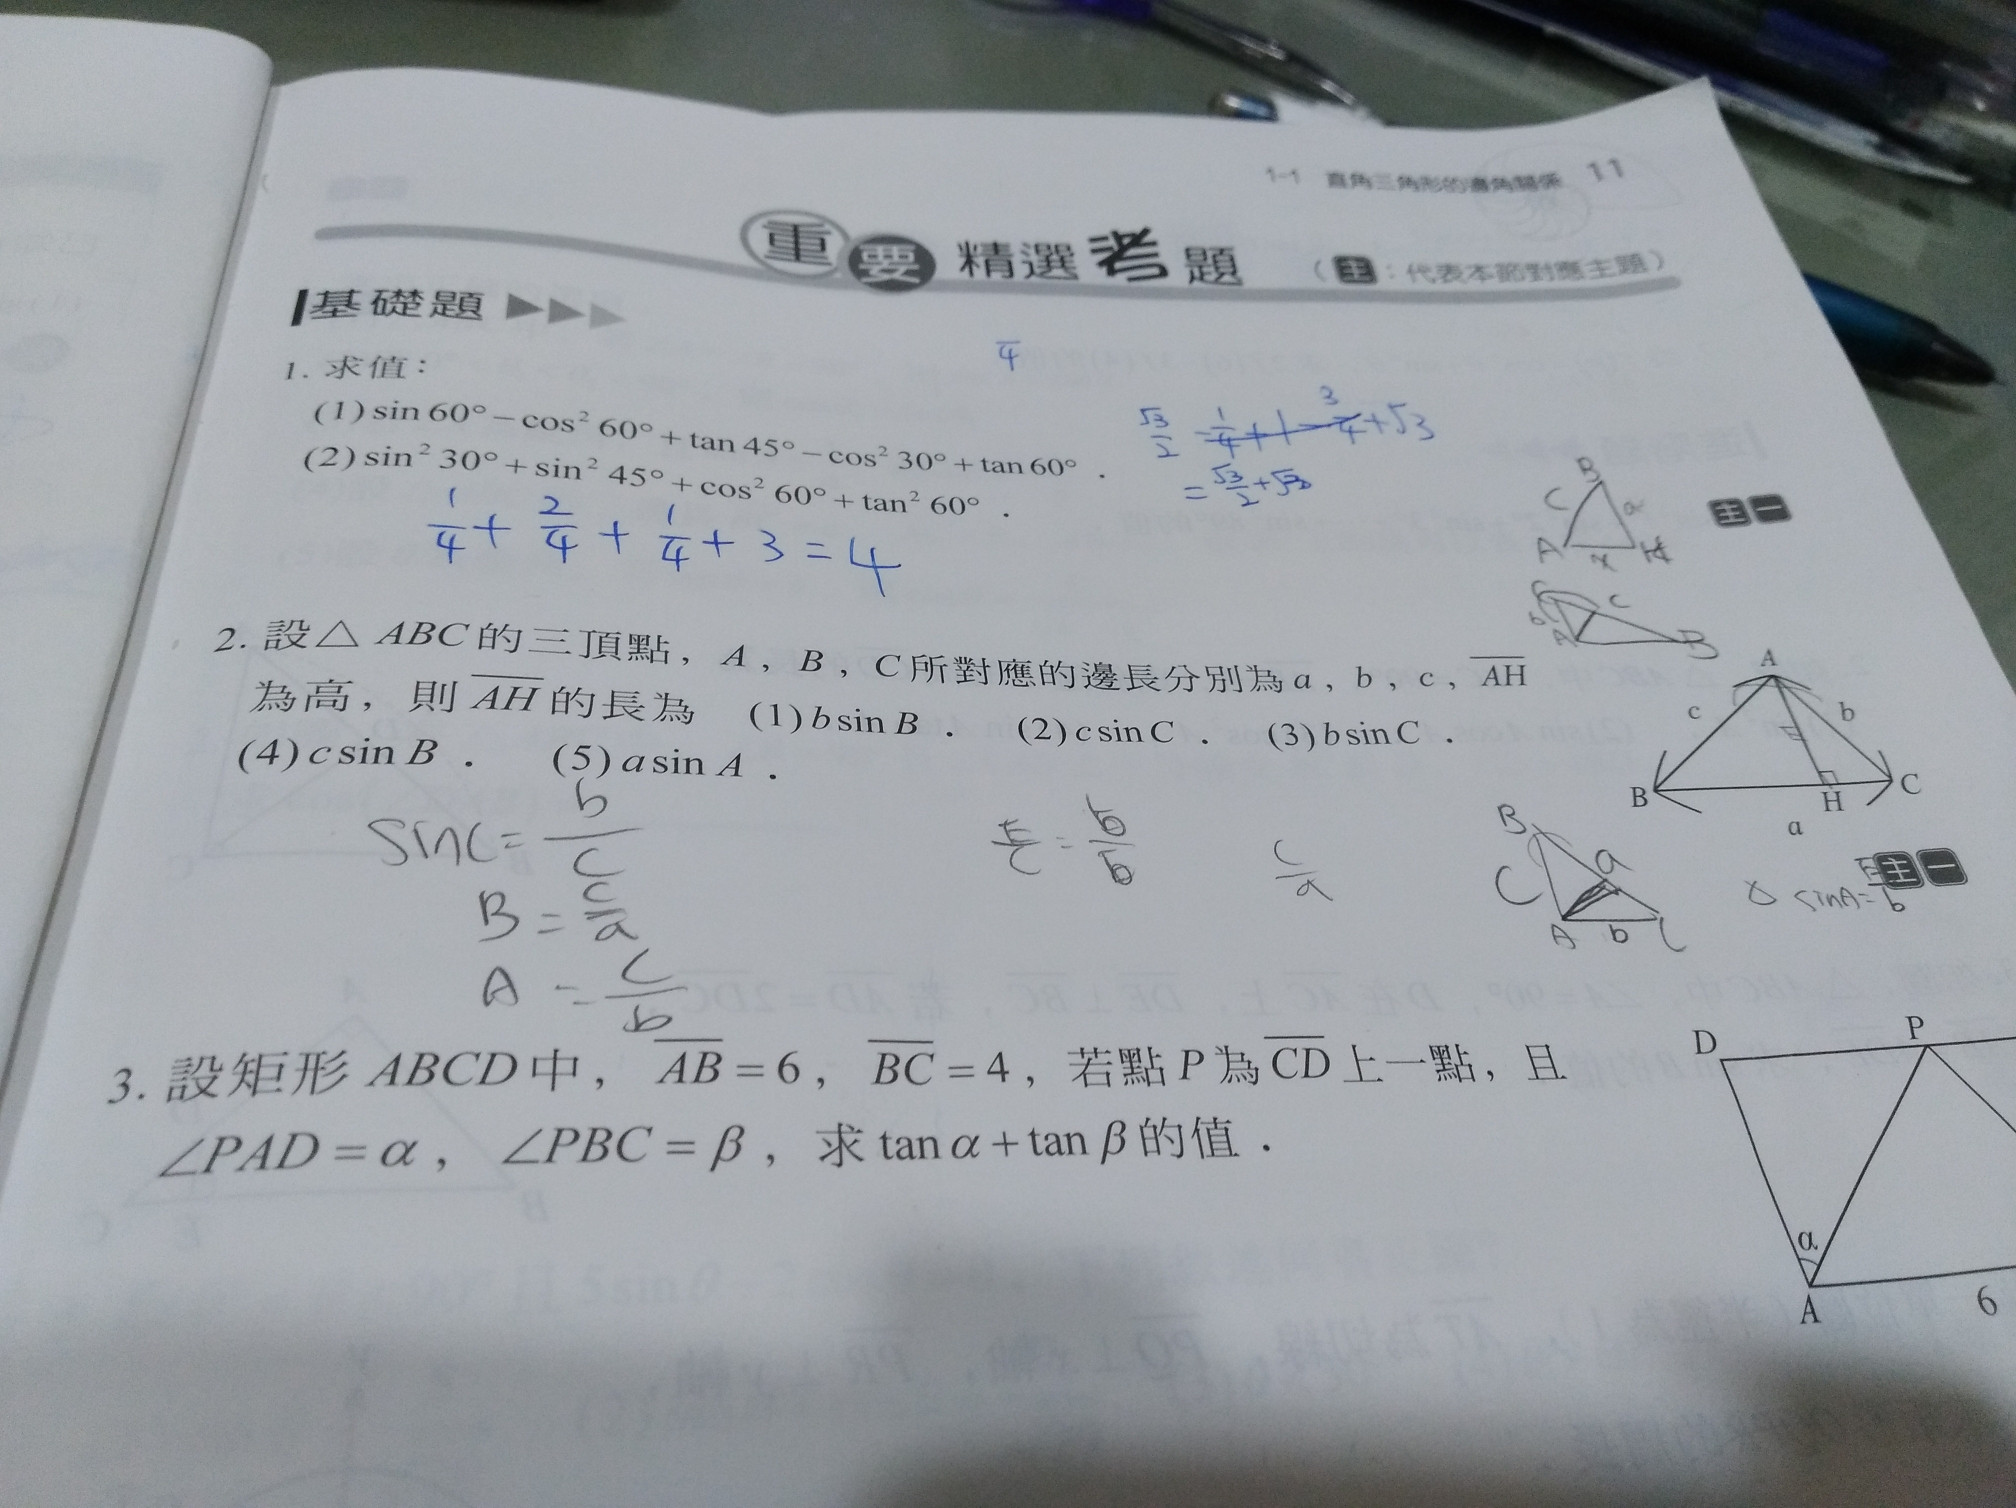 1-1 直角三角形的邊角關係 11
重要精選考題 (主:代表本節對應主題)
基礎題
1. 求值:
(1) sin 60° − cos² 60° + tan 45° − cos² 30° + tan 60° .
(2) sin² 30° + sin² 45° + cos² 60° + tan² 60° .
4
√3/2 = 1/4 + 1 − 3/4 + √3
= √3/2 + √3
1/4 + 2/4 + 1/4 + 3 = 4
主一
B
C a
A x H
c
b
A B
2. 設△ ABC 的三頂點, A , B , C 所對應的邊長分別為 a , b , c , AH
為高, 則 AH 的長為 (1) b sin B . (2) c sin C . (3) b sin C .
(4) c sin B . (5) a sin A .
A
c b
B H C
a
主一
sinC = b/c
B = c/a
A = c/b
b/b
c/a
B
C a
A b C
sinA= b
3. 設矩形 ABCD 中, AB = 6 , BC = 4 , 若點 P 為 CD 上一點, 且
∠PAD = α , ∠PBC = β , 求 tan α + tan β 的值 .
D P
α
A 6